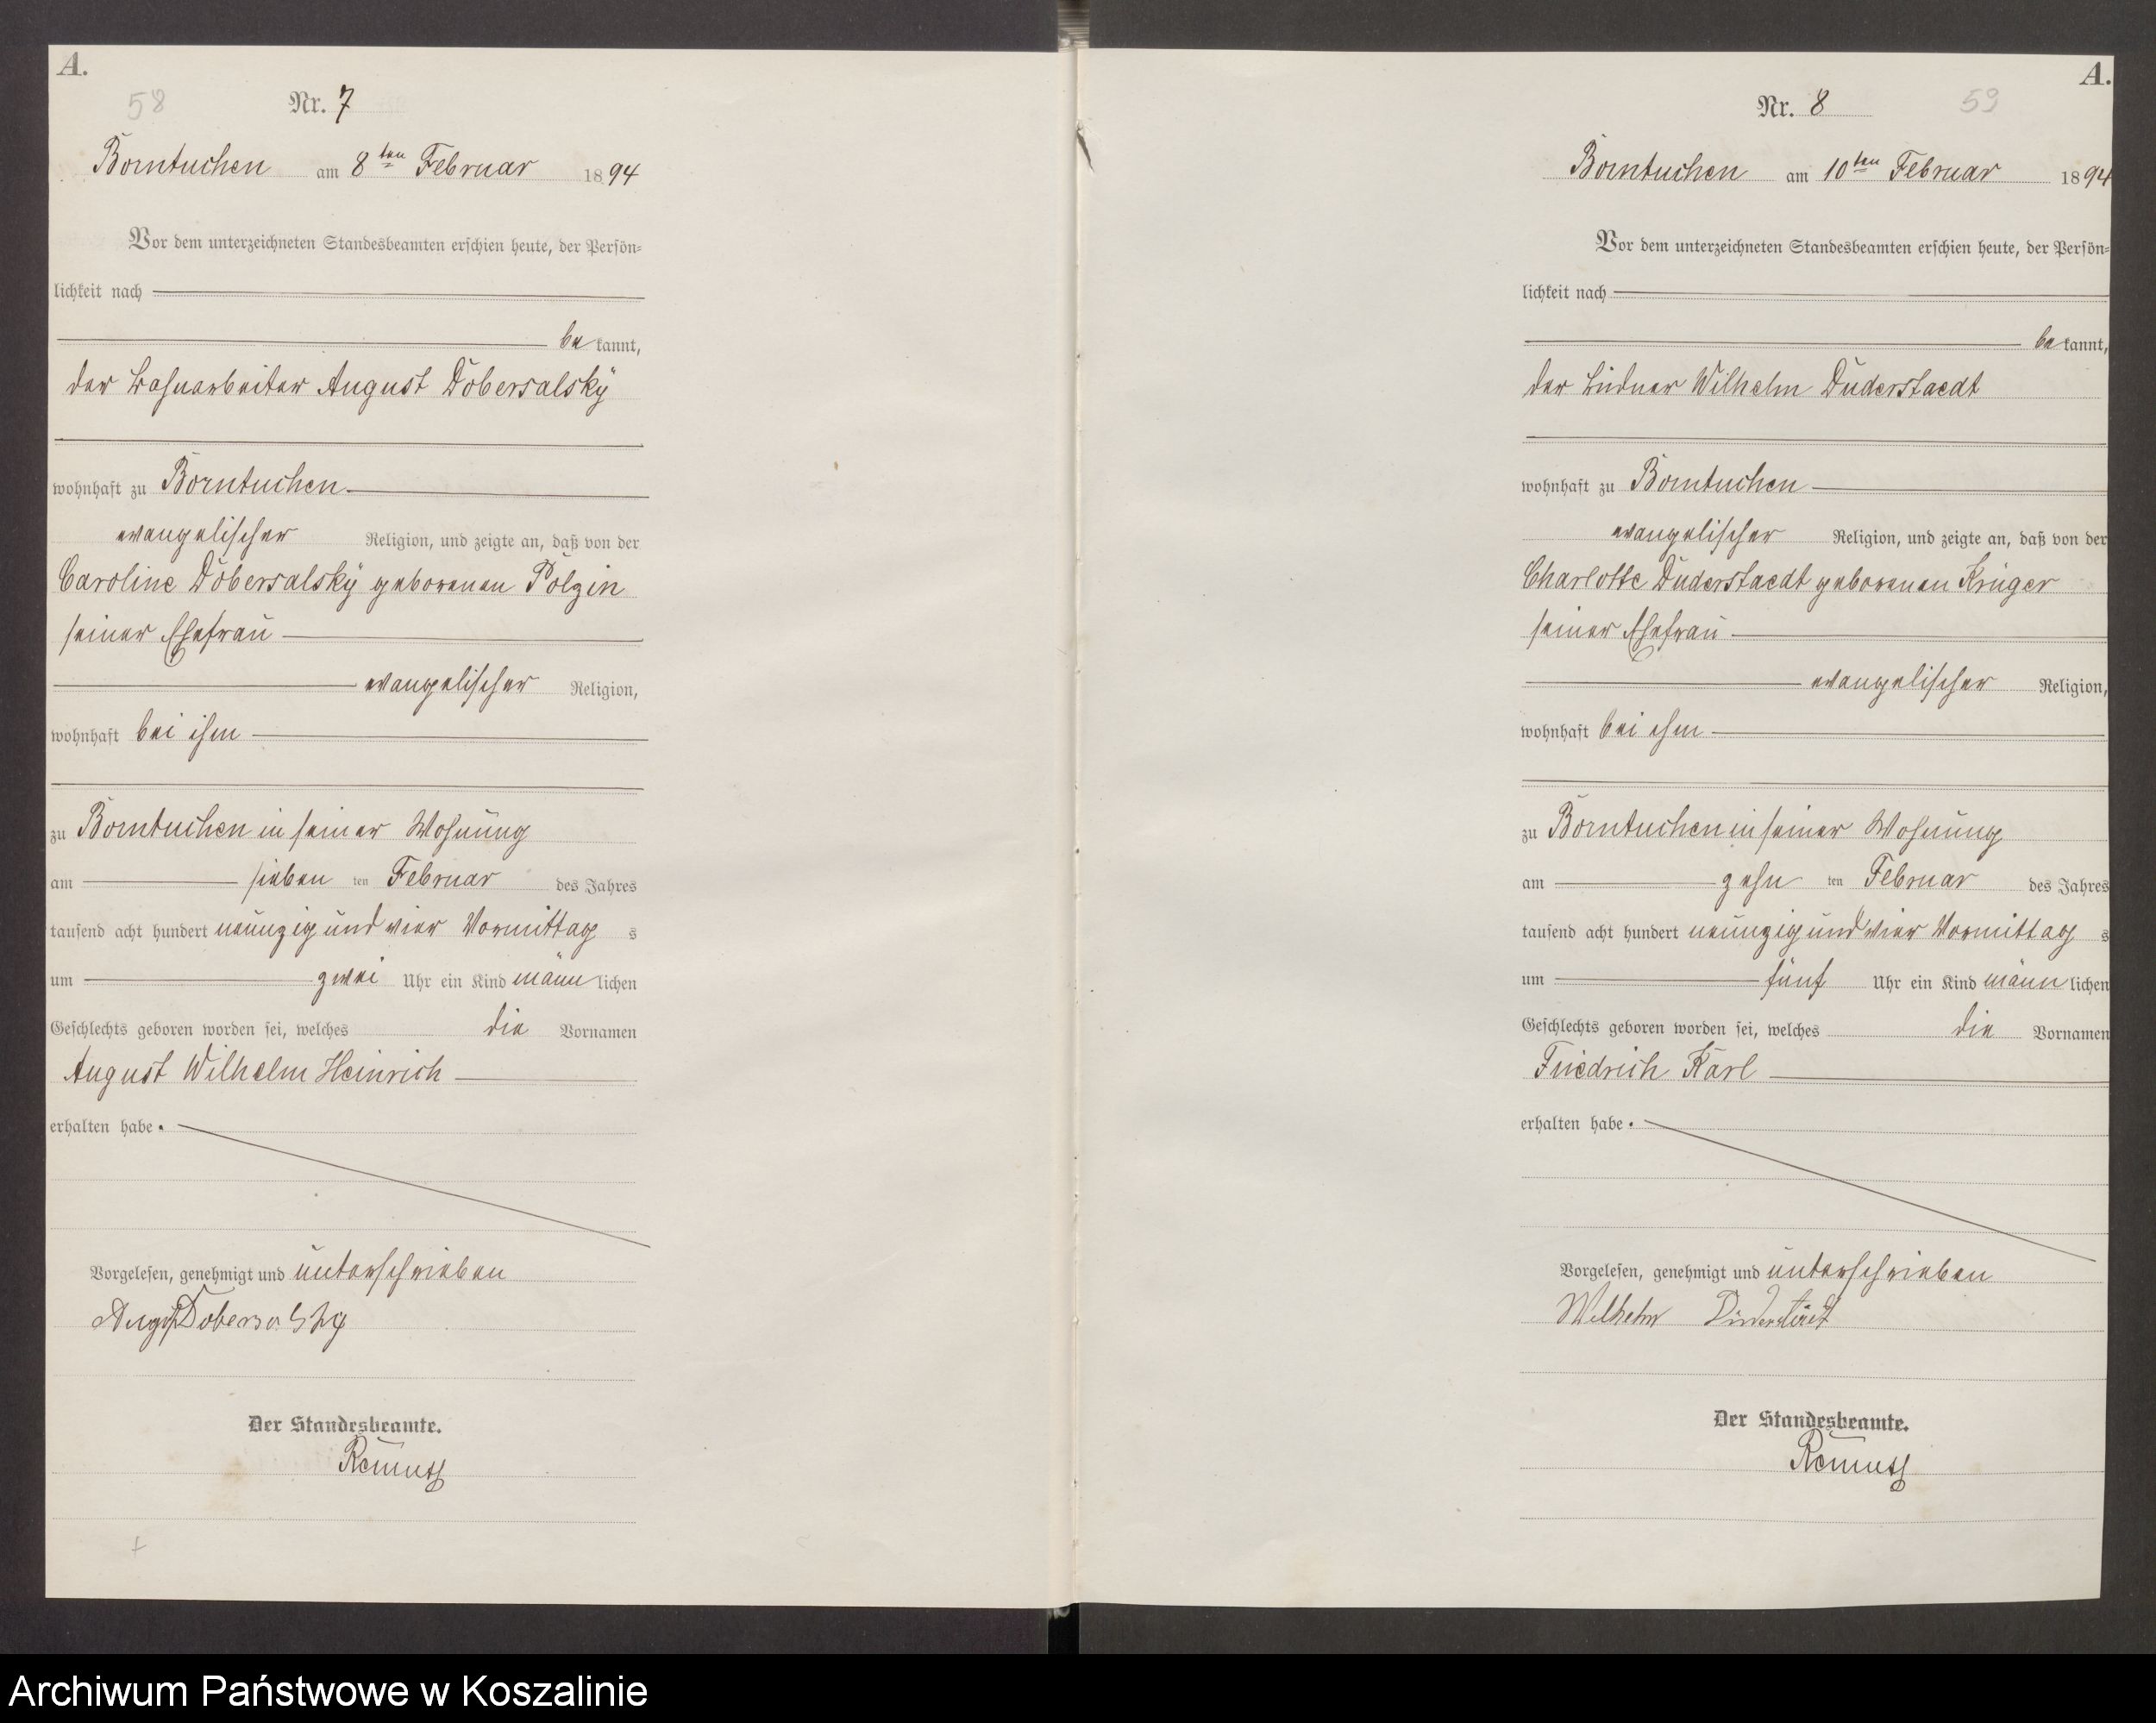 A.
58
Nr. 7
Borntuchen am 8ten Februar 1894
Vor dem unterzeichneten Standesbeamten erschien heute, der Persön-
lichkeit nach
bekannt,
der Bahnarbeiter August Dobersalsky
wohnhaft zu Borntuchen
evangelischer Religion, und zeigte an, daß von der
Caroline Dobersalsky geborenen Polzin
seiner Ehefrau
evangelischer Religion,
wohnhaft bei ihm
zu Borntuchen in seiner Wohnung
am sieben ten Februar des Jahres
tausend acht hundert neunzig und vier Vormittags
um zwei Uhr ein Kind männlichen
Geschlechts geboren worden sei, welches die Vornamen
August Wilhelm Heinrich
erhalten habe.
Vorgelesen, genehmigt und unterschrieben
August Dobersalsky
Der Standesbeamte.
A.
Nr. 8
59
Borntuchen am 10ten Februar 1894
Vor dem unterzeichneten Standesbeamten erschien heute, der Persön-
lichkeit nach
bekannt,
der Büdner Wilhelm Duderstaedt
wohnhaft zu Borntuchen
evangelischer Religion, und zeigte an, daß von der
Charlotte Duderstaedt geborenen Krüger
seiner Ehefrau
evangelischer Religion,
wohnhaft bei ihm
zu Borntuchen in seiner Wohnung
am zehn ten Februar des Jahres
tausend acht hundert neunzig und vier Vormittags
um fünf Uhr ein Kind männlichen
Geschlechts geboren worden sei, welches die Vornamen
Friedrich Karl
erhalten habe.
Vorgelesen, genehmigt und unterschrieben
Wilhelm
Der Standesbeamte.
Archiwum Państwowe w Koszalinie